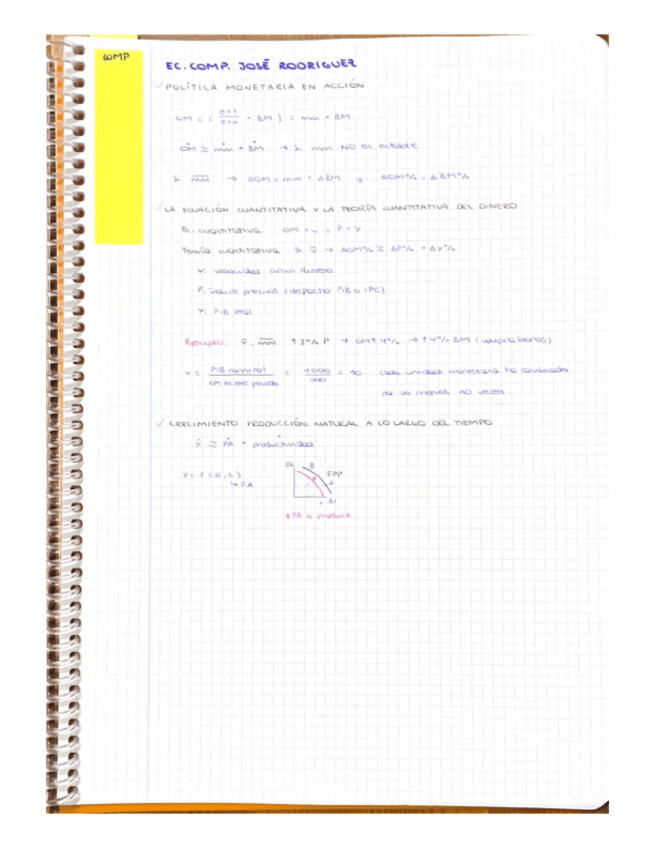 COMP
EC. COMP. JOSÉ RODRIGUEZ
✓ POLÍTICA MONETARIA EN ACCIÓN
OM = ( e+1 / e+w × BM ) = mm × BM
OM ≃ mm + BM → si mm NO es estable
si mm → ΔOM = mm × ΔBM y ΔOM% = ΔBM%
✓ LA ECUACIÓN CUANTITATIVA Y LA TEORÍA CUANTITATIVA DEL DINERO
Ec. cuantitativa OM × v = P × Y
Teoría cuantitativa si v → ΔOM% ≃ ΔP% + ΔY%
v: velocidad circul. dinero
P: índice precios (deflactor PIB o IPC)
Y: PIB real
Ejemplo: mm ↑2% P → OM↑4% → ↑4% BM (compra bonos)
v = PIB nominal / OM = 1000 / = 10 cada unidad monetaria ha cambiado
por lo menos 10 veces
✓ CRECIMIENTO PRODUCCIÓN NATURAL A LO LARGO DEL TIEMPO
Y ≃ PA + productividad
Y = F(K, L)
↳ PA
B
FPP
A